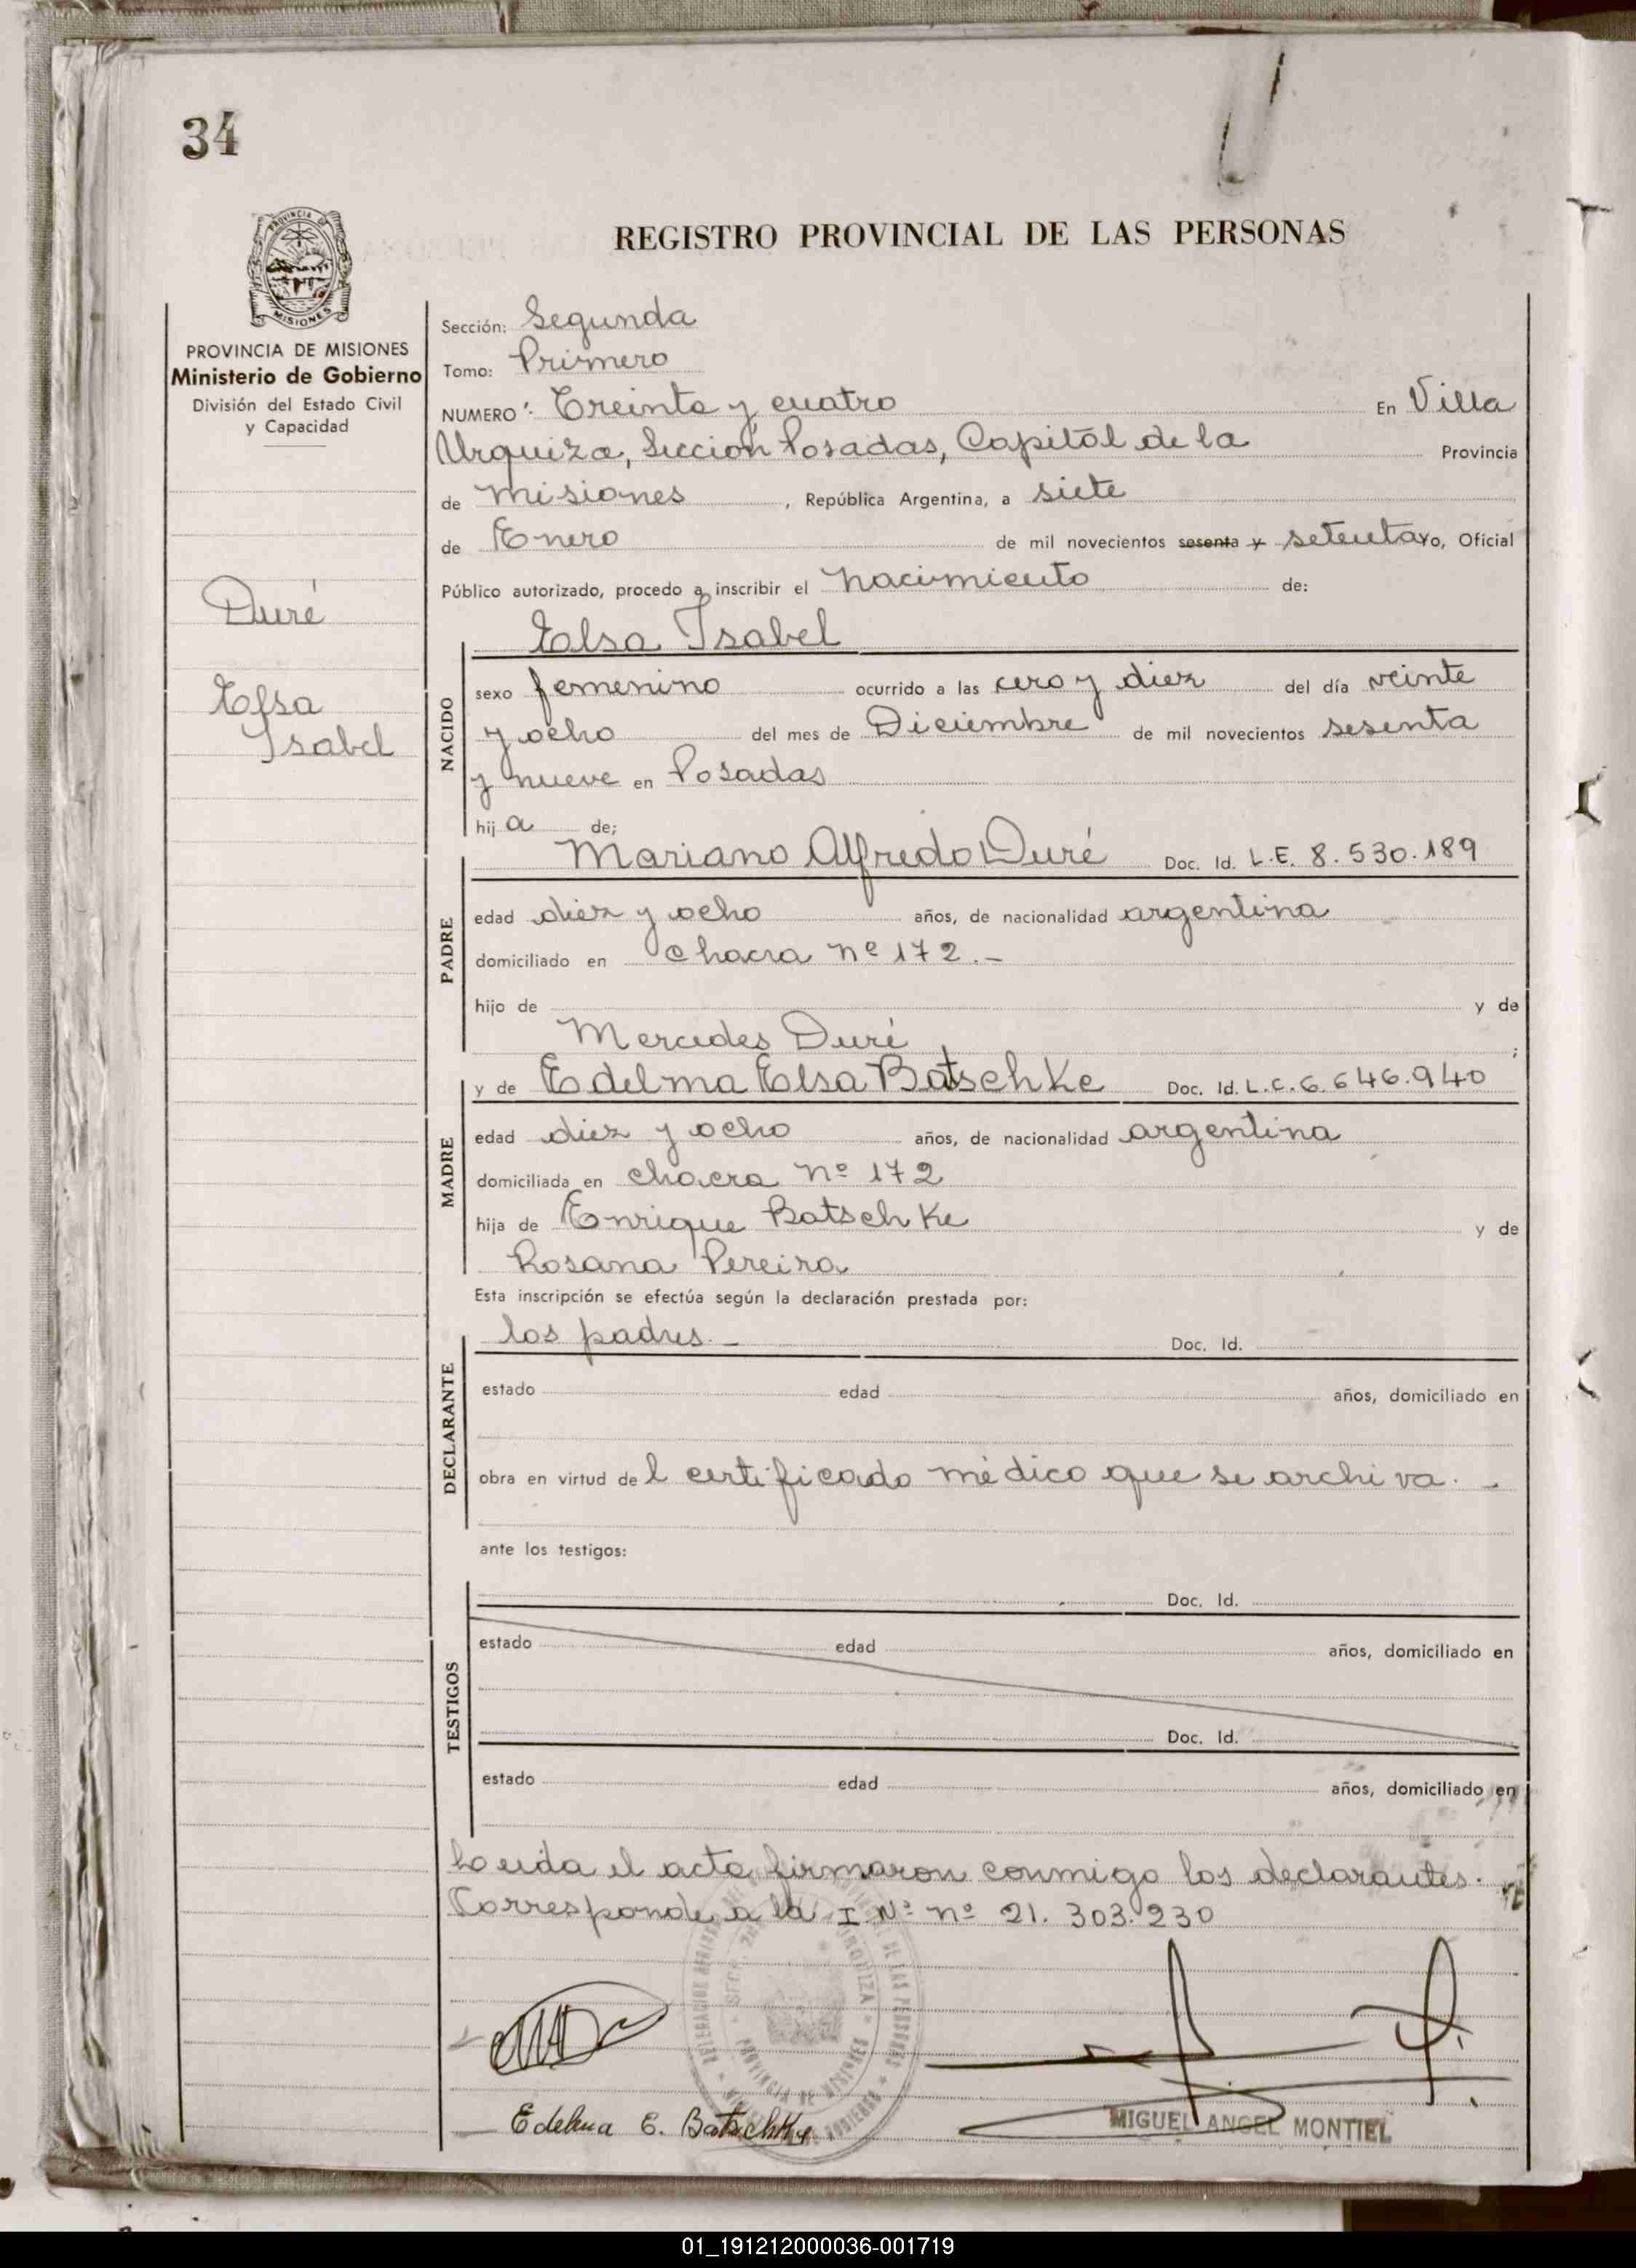 34
REGISTRO PROVINCIAL DE LAS PERSONAS
PROVINCIA DE
MISIONES
PROVINCIA DE MISIONES
Ministerio de Gobierno
División del Estado Civil
y Capacidad
Duré
Elsa
Isabel
Sección: Segunda
Tomo: Primero
NUMERO: Treinta y cuatro En Villa
Urquiza, Sección Posadas, Capital de la Provincia
de Misiones, República Argentina, a siete
de Enero de mil novecientos sesenta y setenta yo, Oficial
Público autorizado, procedo a inscribir el nacimiento de:
Elsa Isabel
NACIDO
sexo femenino ocurrido a las cero y diez del día veinte
y ocho del mes de Diciembre de mil novecientos sesenta
y nueve en Posadas
hij a de;
PADRE
Mariano Alfredo Duré Doc. Id. L.E. 8.530.189
edad diez y ocho años, de nacionalidad argentina
domiciliado en chacra nº 172.-
hijo de y de
Mercedes Duré ;
MADRE
y de Edelma Elsa Batschke Doc. Id. L.C. 6.646.940
edad diez y ocho años, de nacionalidad argentina
domiciliada en chacra nº 172
hija de Enrique Batschke y de
Rosana Pereira
Esta inscripción se efectúa según la declaración prestada por:
DECLARANTE
los padres.- Doc. Id.
estado edad años, domiciliado en
obra en virtud de l certificado médico que se archiva.-
ante los testigos:
TESTIGOS
Doc. Id.
estado edad años, domiciliado en
Doc. Id.
estado edad años, domiciliado en
Leida el acta firmaron conmigo los declarantes.
Corresponde a la I Nº nº 21.303.230
Edelma E. Batschke
MIGUEL ANGEL MONTIEL
01_191212000036-001719